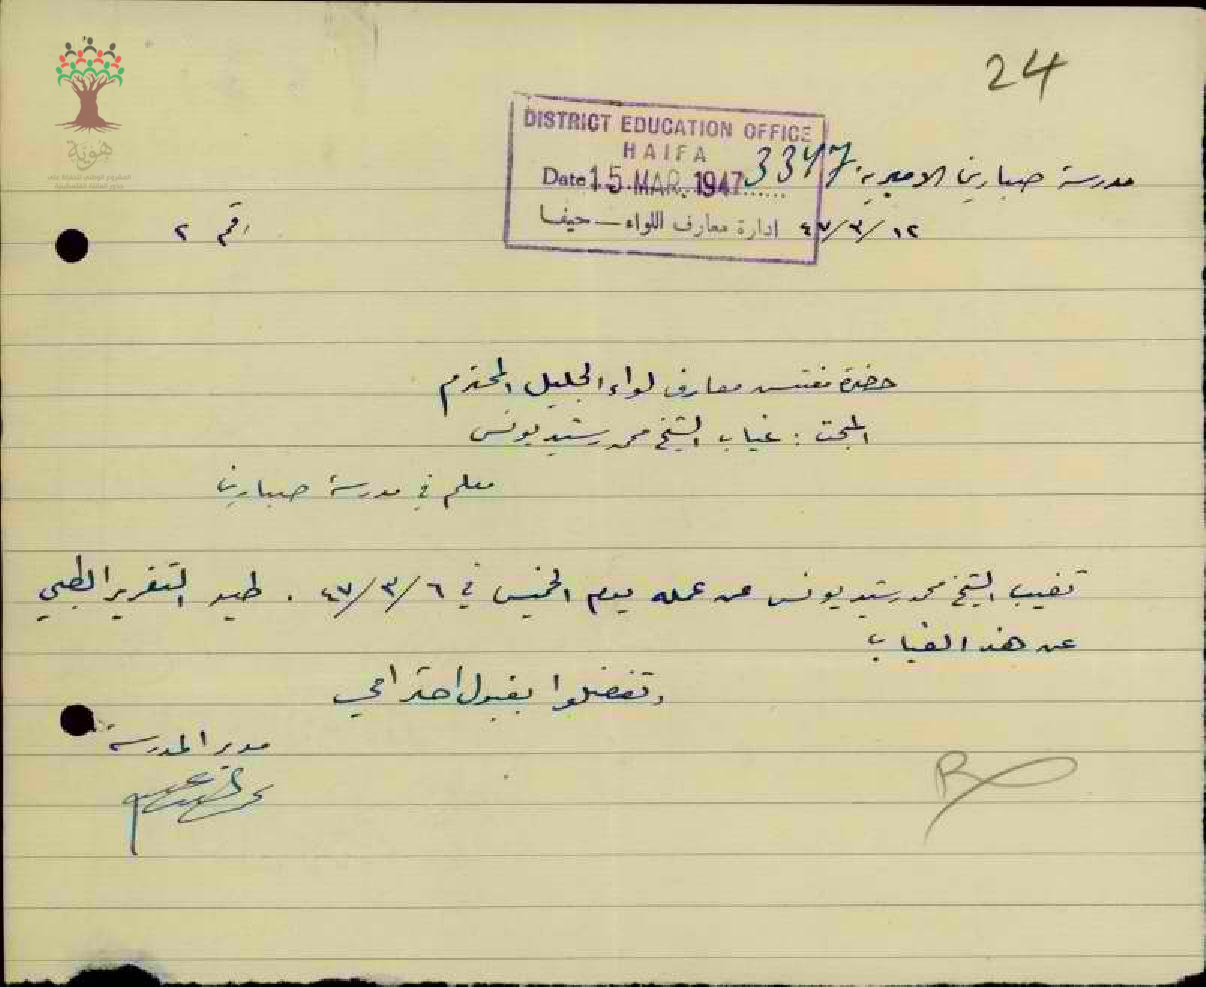 24
هوية
DISTRICT EDUCATION OFFICE
HAIFA
Date 15 MAR. 1947 3347
ادارة معارف اللواء - حيفا
مدرسة صبارين الاميرية
١٢/٣/٤٧
رقم ٢
حضرة مفتش معارف لواء الجليل المحترم
المبحث : غياب الشيخ محمد رشيد يونس
معلم في مدرسة صبارين
تغيب الشيخ محمد رشيد يونس عن عمله يوم الخميس في ٦/٣/٤٧ . طيه التقرير الطبي
عن هذا الغياب
وتفضلوا بقبول احترامي
مدير المدرسة